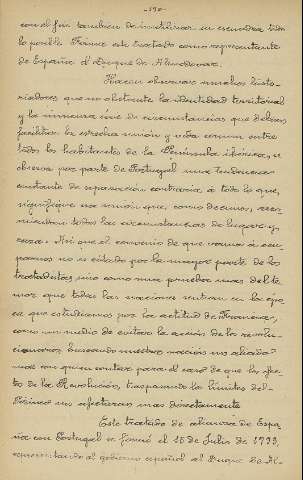 -170-
con el fin tambien de inutilizar su escuadra todo
lo posible. Firmó este tratado como representante
de España el Duque de Almodovar.
Hacen observar muchos histo-
riadores que no obstante la identidad territorial
y la inmensa serie de circunstancias que debian
facilitar la estrecha unión y vida comun entre
todos los habitantes de la Península ibérica, se
observa por parte de Portugal una tendencia
constante de separacion contraria á todo lo que
significase esa unión que, como decimos, reco-
miendan todas las circunstancias de lugar y
raza. Asi que el convenio de que vamos á ocu-
parnos no es citado por la mayor parte de los
tratadistas, sino como una prueba mas del te-
mor que todas las naciones sentian en la épo-
ca que estudiamos por la actitud de Francia,
como un medio de evitar la acción de los revolu-
cionarios, buscando nuestra nación un aliado
mas con quien contar para el caso de que los efec-
tos de la Revolución, traspasando los límites del
Pirineo nos afectaran mas directamente.
Este tratado de alianza de Espa-
ña con Portugal se firmó el 15 de Julio de 1793,
representando al gobierno español el Duque de Al-